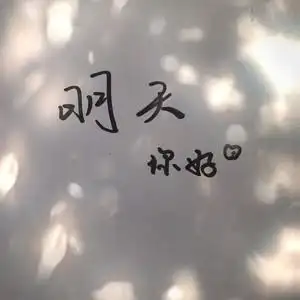 明天
你好